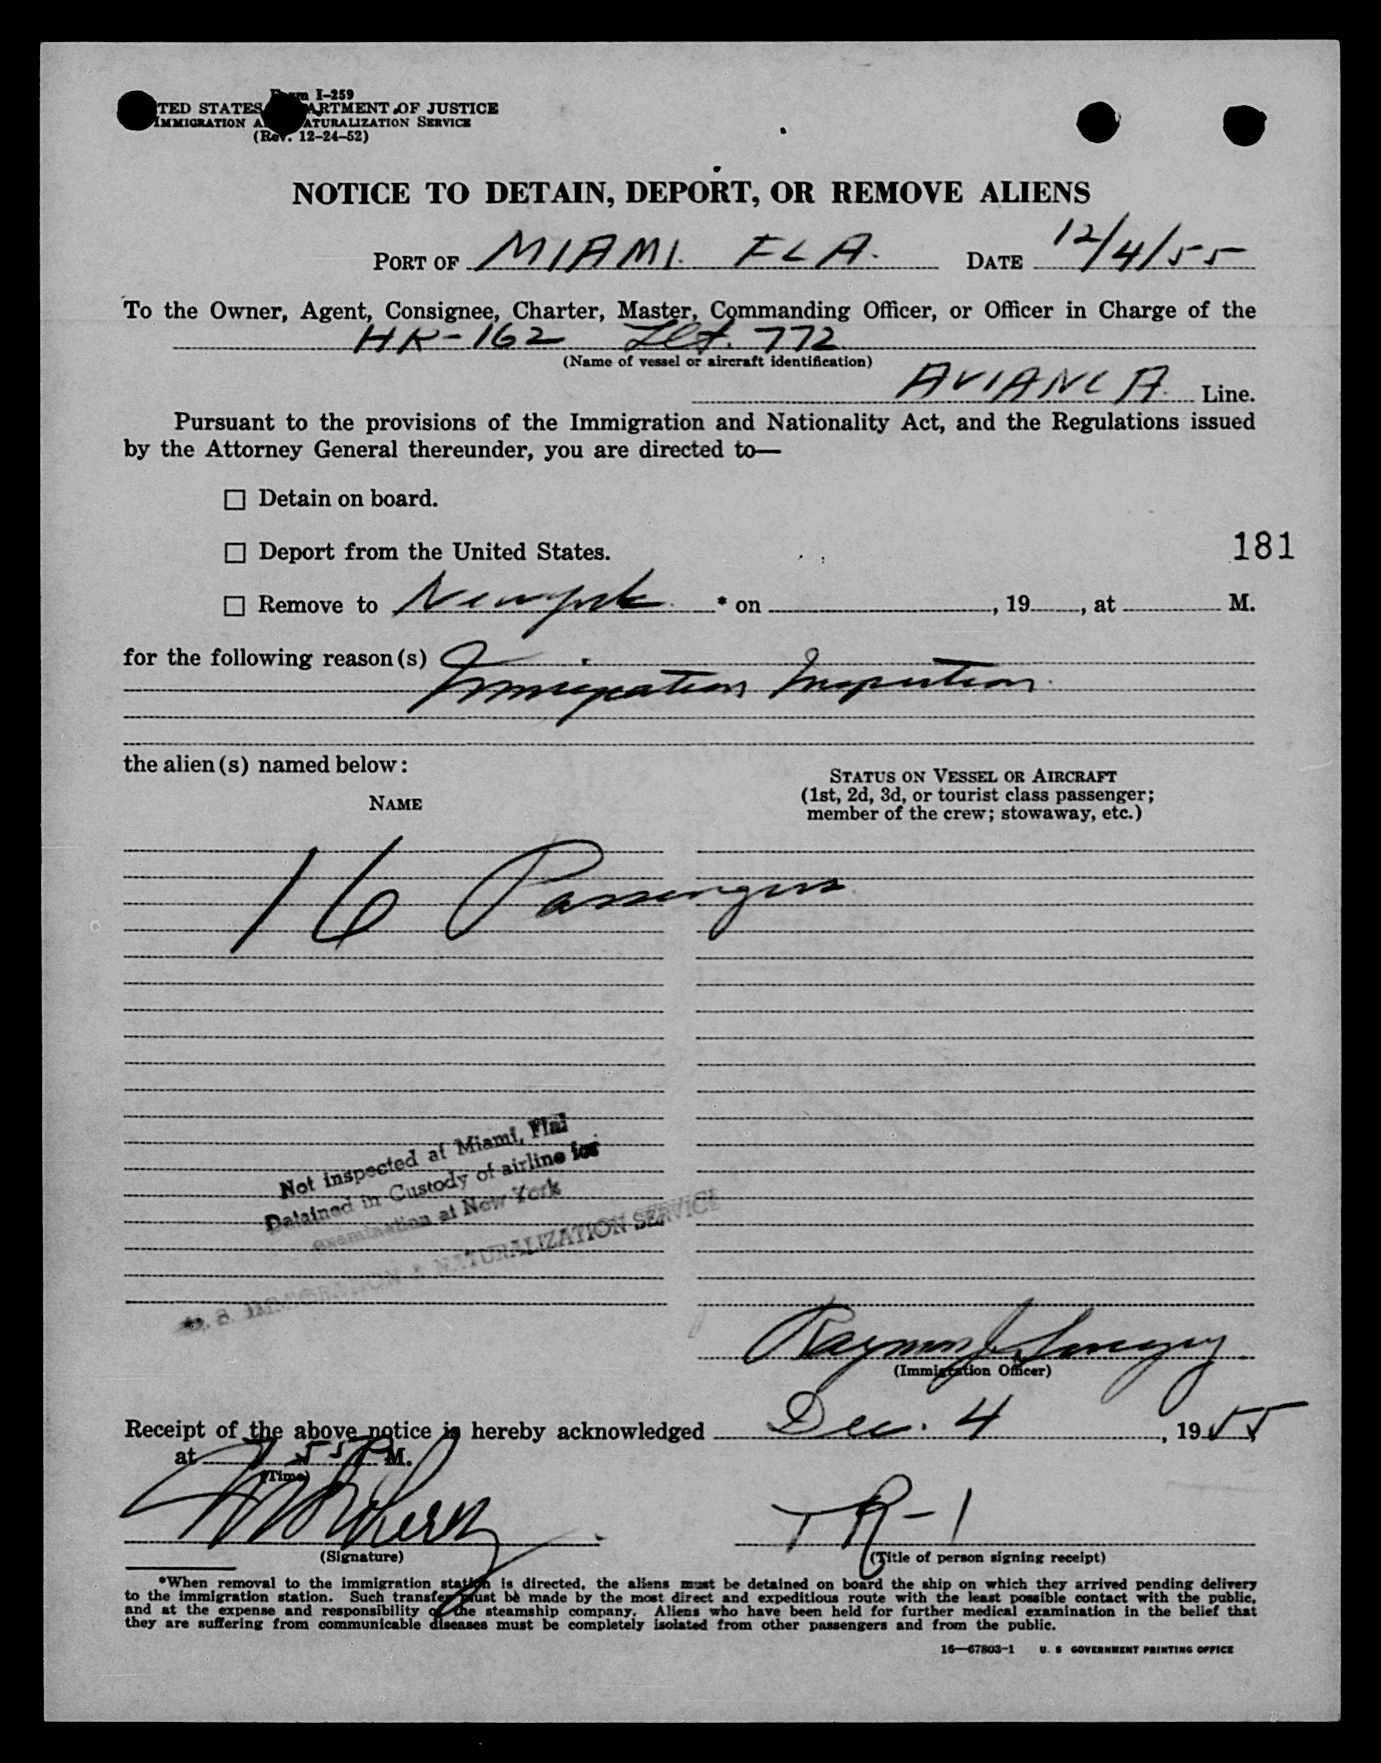 Form I-259
UNITED STATES DEPARTMENT OF JUSTICE
IMMIGRATION AND NATURALIZATION SERVICE
(Rev. 12-24-52)
NOTICE TO DETAIN, DEPORT, OR REMOVE ALIENS
PORT OF MIAMI. FLA. DATE 12/4/55
To the Owner, Agent, Consignee, Charter, Master, Commanding Officer, or Officer in Charge of the
HK-162 Flt. 772
(Name of vessel or aircraft identification)
AVIANCA Line.
Pursuant to the provisions of the Immigration and Nationality Act, and the Regulations issued
by the Attorney General thereunder, you are directed to—
☐ Detain on board.
☐ Deport from the United States.
181
☐ Remove to New York * on , 19 , at M.
for the following reason(s)
Immigration Inspection
the alien(s) named below:
NAME
STATUS ON VESSEL OR AIRCRAFT
(1st, 2d, 3d, or tourist class passenger;
member of the crew; stowaway, etc.)
16 Passengers
Not inspected at Miami, Fla
Detained in Custody of airline for
examination at New York
U. S. IMMIGRATION & NATURALIZATION SERVICE
Raymond J.
(Immigration Officer)
Receipt of the above notice is hereby acknowledged Dec. 4, 1955
at M.
(Time)
TR-1
(Signature)
(Title of person signing receipt)
*When removal to the immigration station is directed, the aliens must be detained on board the ship on which they arrived pending delivery
to the immigration station. Such transfer must be made by the most direct and expeditious route with the least possible contact with the public,
and at the expense and responsibility of the steamship company. Aliens who have been held for further medical examination in the belief that
they are suffering from communicable diseases must be completely isolated from other passengers and from the public.
16—67803-1 U. S GOVERNMENT PRINTING OFFICE